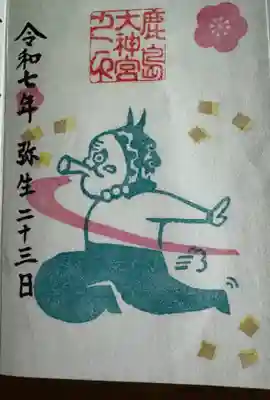 鹿島
大神宮
之印
令和七年 弥生二十三日